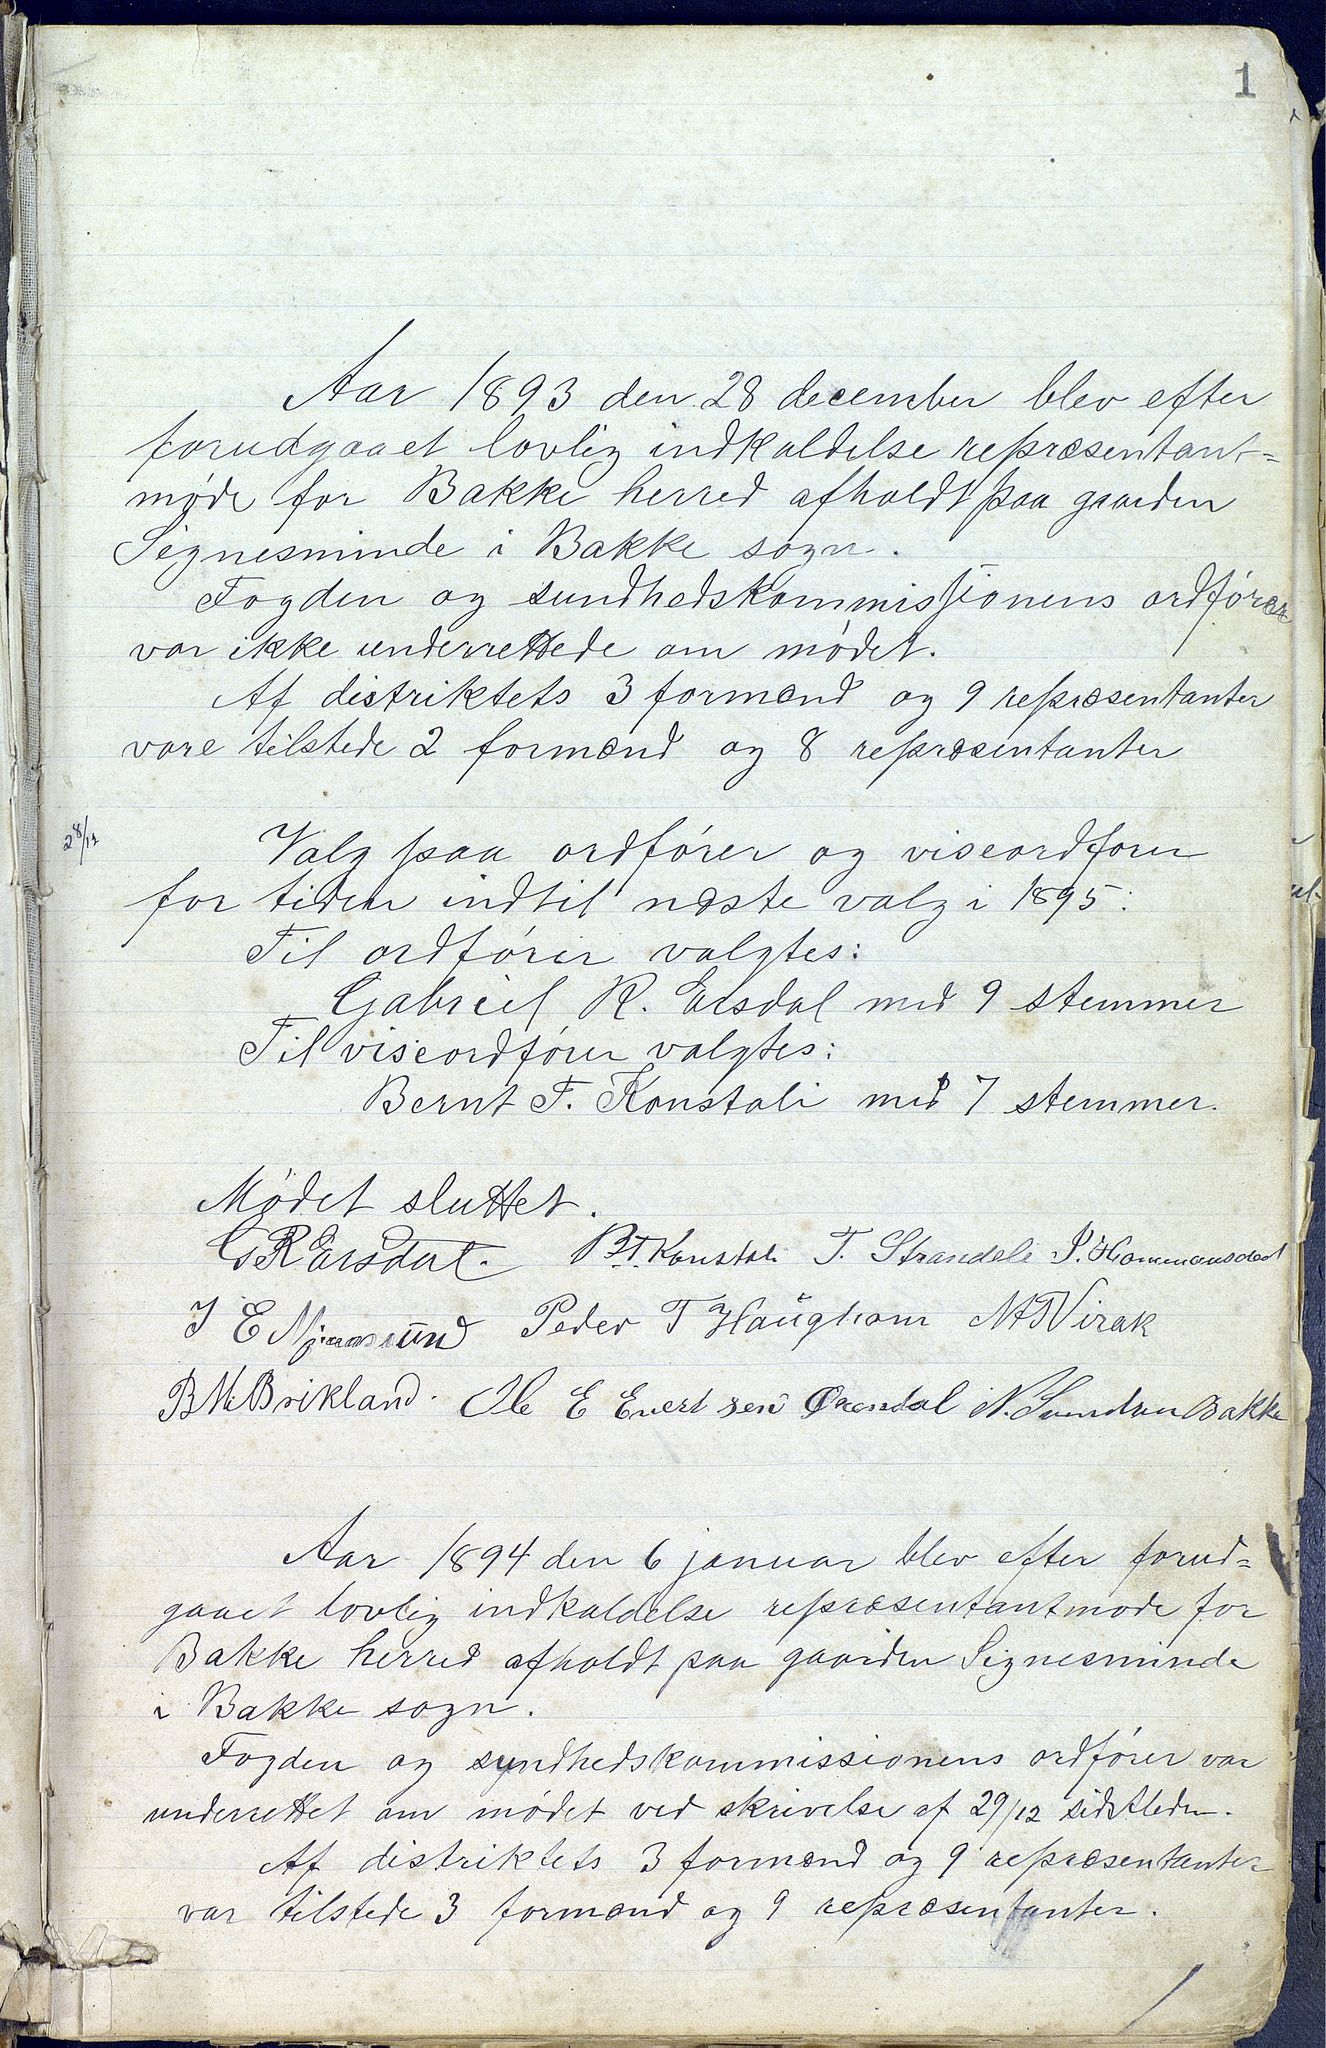 1
Aar 1893 den 28 december blev efter
forudgaaet lovlig indkaldelse repræsentant=
møde for Bakke herred afholdt paa gaarden
Signesminde i Bakke sogn.
Fogden og sundhedskommissionens ordfører
var ikke underrettede om mødet.
Af distriktets 3 formænd og 9 repræsentanter
vare tilstede 2 formænd og 8 repræsentanter
28/12
Valg paa ordfører og viseordfører
for tiden indtil næste valg i 1895:
Til ordfører valgtes:
Gabriel R. Eesdal med 9 stemmer
Til viseordfører valgtes:
Bernt T. Konstali med 7 stemmer.
Mødet sluttet.
G R Eersdal. B.T. Konstali T. Strandeli P. Hommensdal
J E Peder T Haughom Virak
B M. Brikland. Ole E Evertsen Øxendal N. Svendsen Bakke
Aar 1894 den 6 januar blev efter forud=
gaaet lovlig indkaldelse repræsentantmøde for
Bakke herred afholdt paa gaarden Signesminde
i Bakke sogn.
Fogden og syndhedskommissionens ordfører var
underrettet om mødet ved skrivelse af 29/12 sidstleden.
Af distriktets 3 formænd og 9 repræsentanter
var tilstede 3 formænd og 9 repræsentanter.